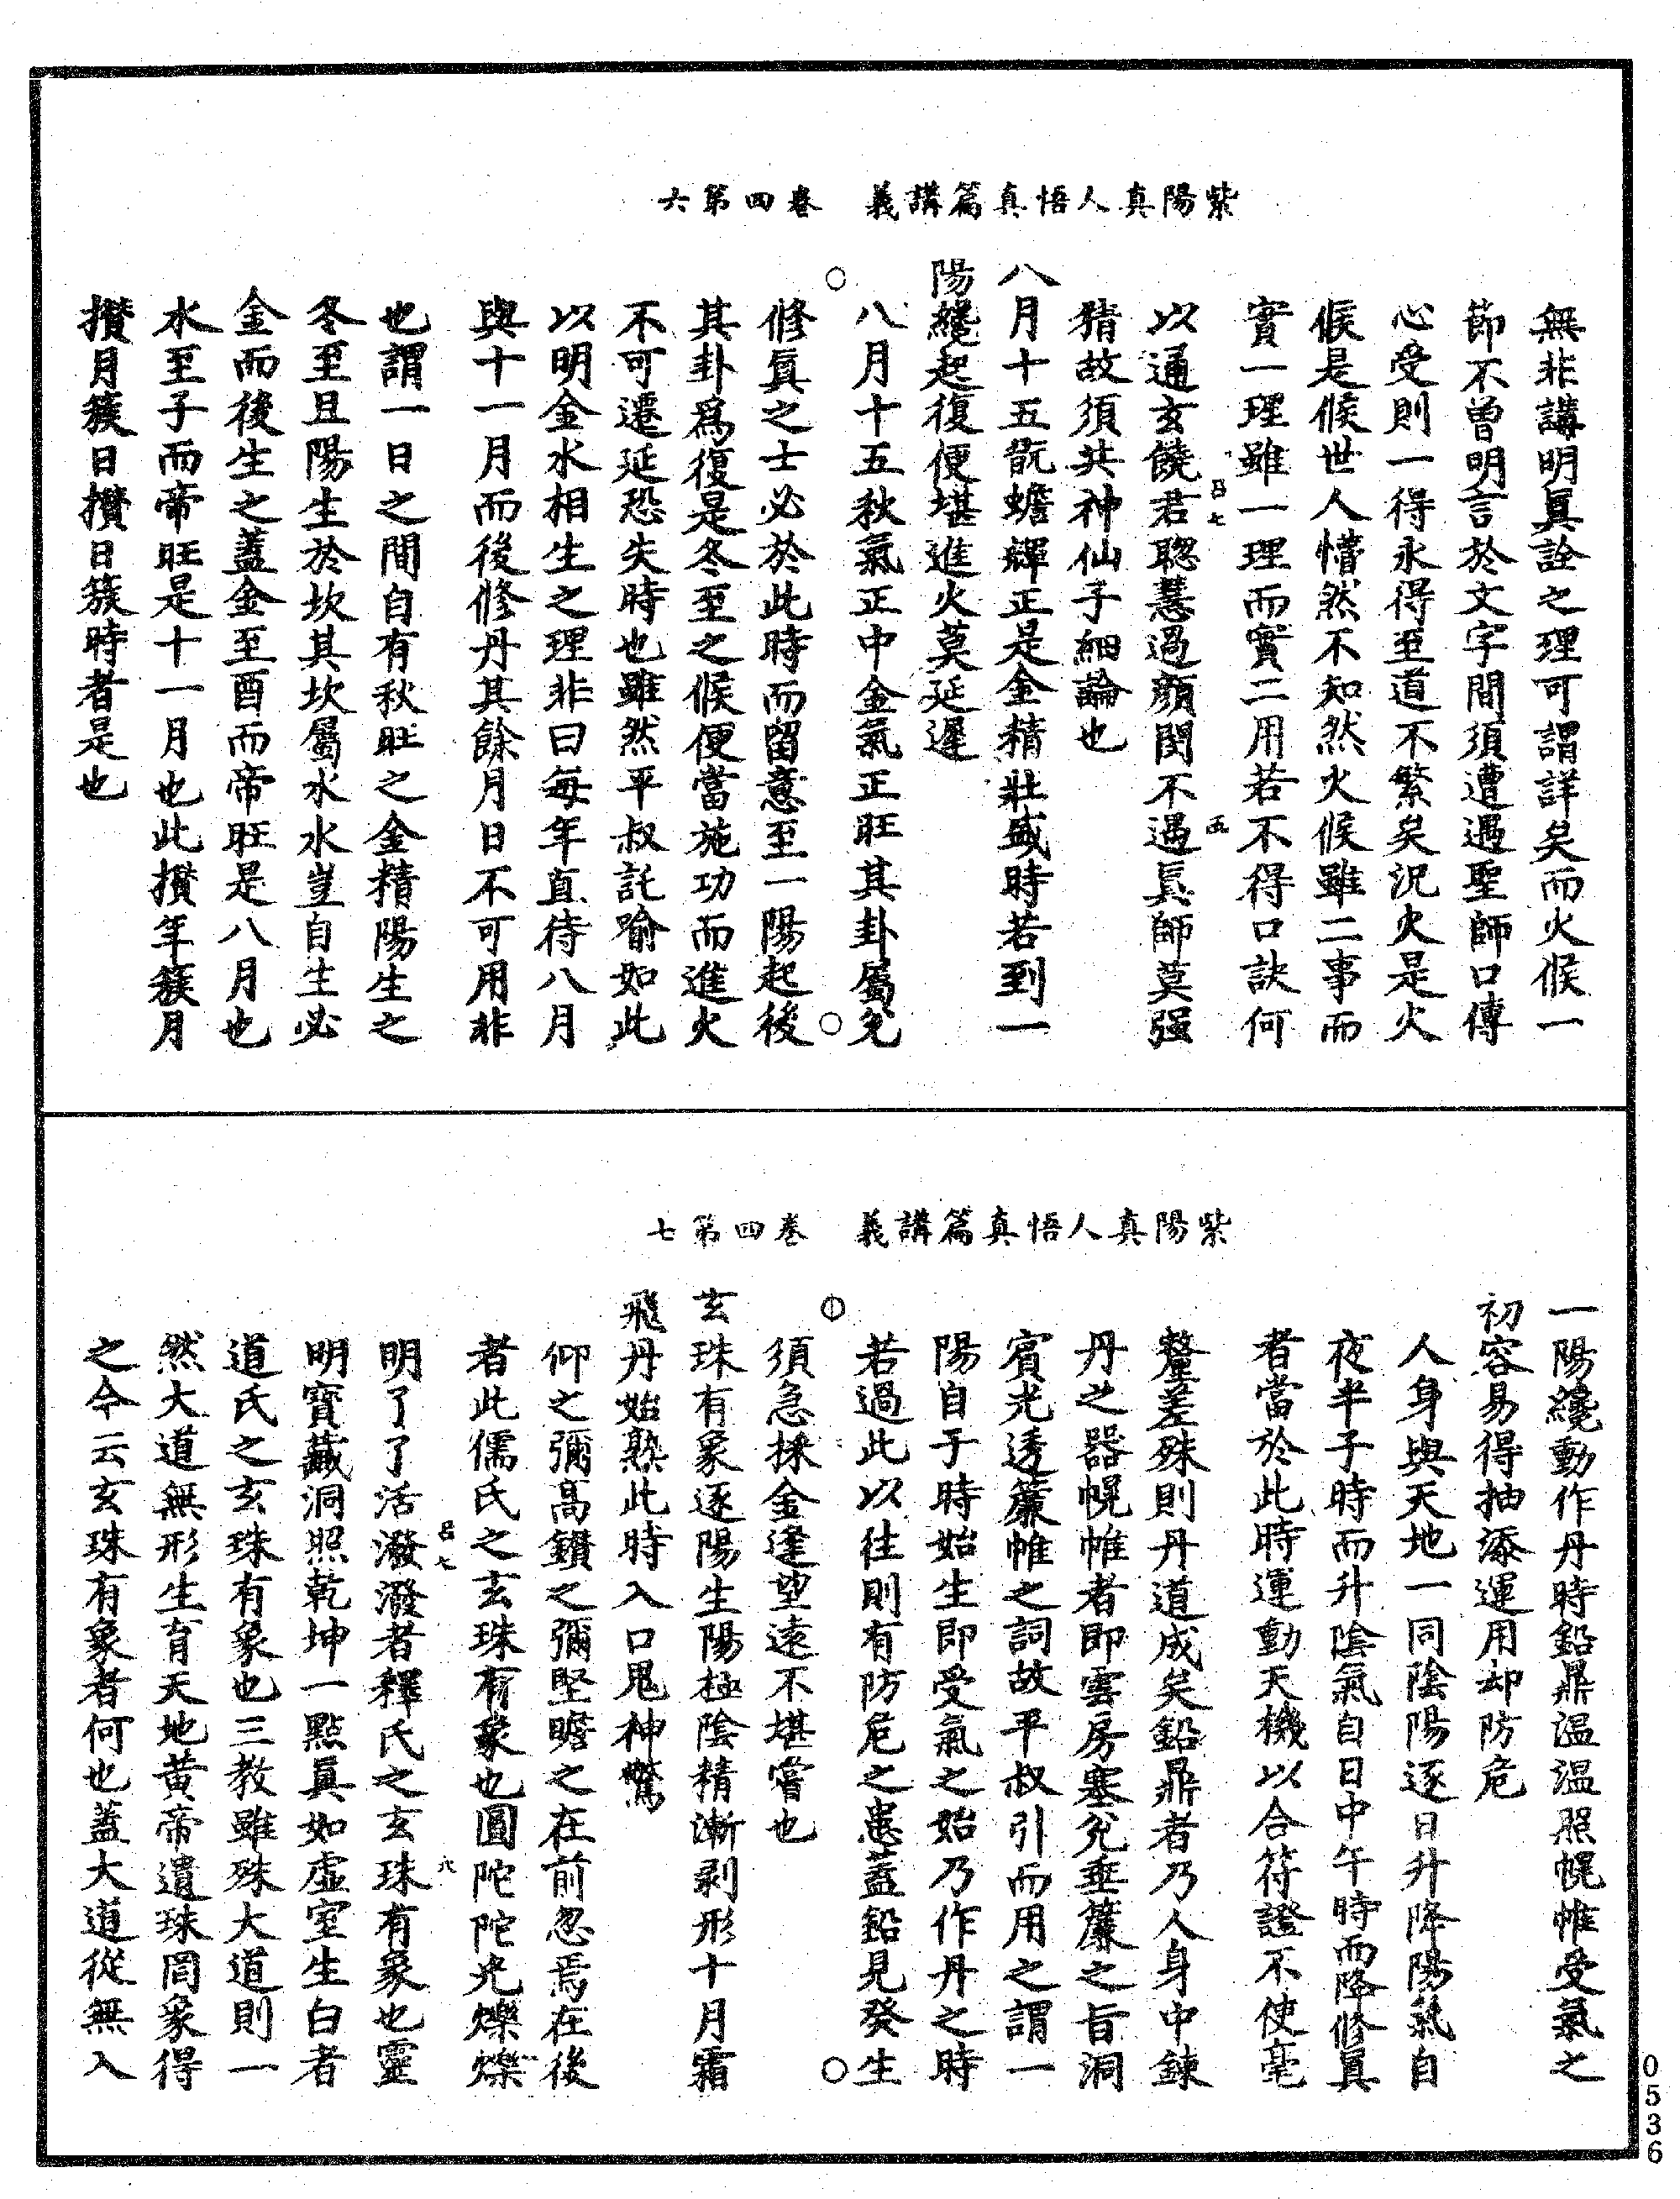 紫陽真人悟真篇講義　卷四第六
無非講明眞詮之理可謂詳矣而火候一
節不曾明言於文字間須遭遇聖師口傳
心受則一得永得至道不繁矣況火是火
候是候世人懵然不知然火候雖二事而
實一理雖一理而實二用若不得口訣何
呂七
五
以通玄饒君聰慧過顔閔不遇眞師莫强
猜故須共神仙子細論也
八月十五翫蟾輝正是金精壯盛時若到一
陽纔起復便堪進火莫延遲
八月十五秋氣正中金氣正旺其卦屬兌
修眞之士必於此時而留意至一陽起後
其卦爲復是冬至之候便當施功而進火
不可遷延恐失時也雖然平叔託喻如此
以明金水相生之理非曰每年直待八月
與十一月而後修丹其餘月日不可用非
也謂一日之間自有秋旺之金精陽生之
冬至且陽生於坎其坎屬水水豈自生必
金而後生之蓋金至酉而帝旺是八月也
水至子而帝旺是十一月也此攢年簇月
攢月簇日攢日簇時者是也
紫陽真人悟真篇講義　卷四第七
一陽纔動作丹時鉛鼎溫溫照幌帷受氣之
初容易得抽添運用却防危
人身與天地一同陰陽逐日升降陽氣自
夜半子時而升陰氣自日中午時而降修眞
者當於此時運動天機以合符證不使毫
釐差殊則丹道成矣鉛鼎者乃人身中鍊
丹之器幌帷者即雲房塞兌垂簾之旨洞
賓光透簾帷之詞故平叔引而用之謂一
陽自于時始生即受氣之始乃作丹之時
若過此以往則有防危之患蓋鉛見癸生
須急採金逢望遠不堪嘗也
玄珠有象逐陽生陽極陰精漸剥形十月霜
飛丹始熟此時入口鬼神驚
仰之彌高鑽之彌堅瞻之在前忽焉在後
者此儒氏之玄珠有象也圓陀陀光爍爍
呂七
六
明了了活潑潑者釋氏之玄珠有象也靈
明寶藏洞照乾坤一點眞如虛室生白者
道氏之玄珠有象也三教雖殊大道則一
然大道無形生育天地黄帝遺珠罔象得
之今云玄珠有象者何也蓋大道從無入
0536